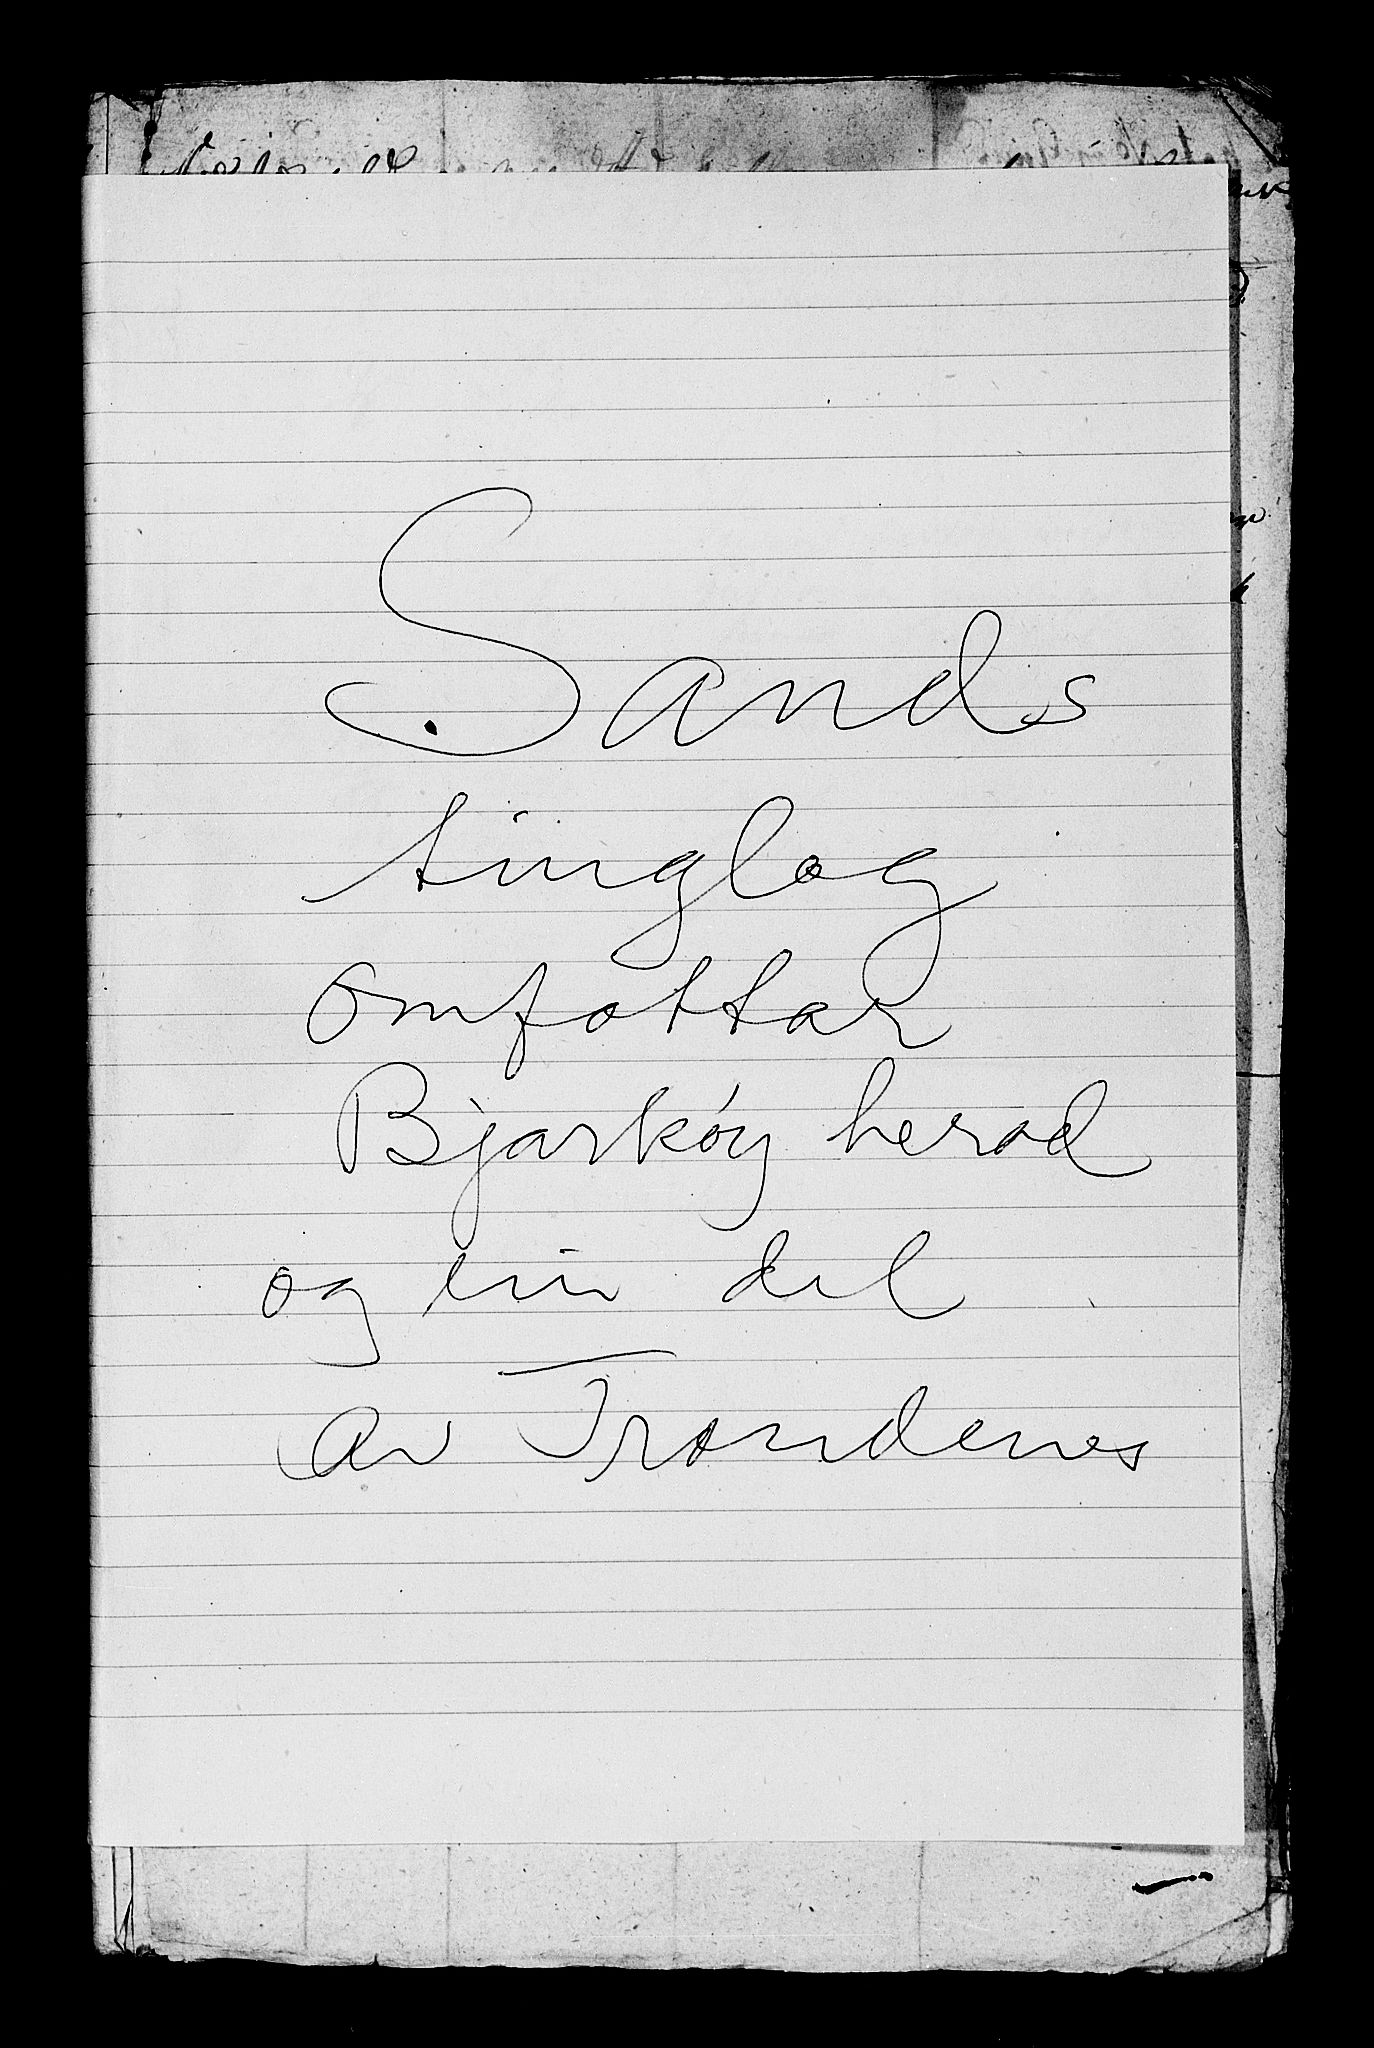 Sands
tinglag
omfattar
Bjarkóy herad
og ein del
av Trondenes